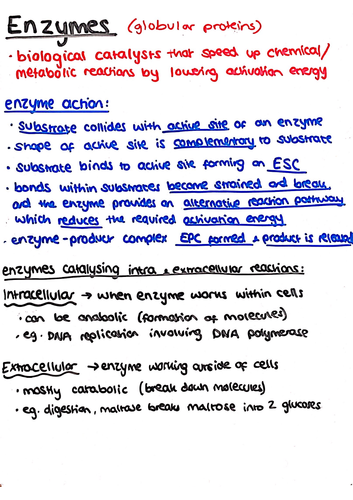 Enzymes (globular proteins)
• biological catalysts that speed up chemical/
metabolic reactions by lowering activation energy
enzyme action:
• substrate collides with active site of an enzyme
• shape of active site is complementary to substrate
• substrate binds to active site forming an ESC
• bonds within substrates become strained and break,
and the enzyme provides an alternative reaction pathway
which reduces the required activation energy
• enzyme-product complex EPC formed & product is released
enzymes catalysing intra & extracellular reactions:
Intracellular → when enzyme works within cells
• can be anabolic (formation of molecules)
• eg. DNA replication involving DNA polymerase
Extracellular → enzyme working outside of cells
• mostly catabolic (break down molecules)
• eg. digestion, maltase breaks maltose into 2 glucoses